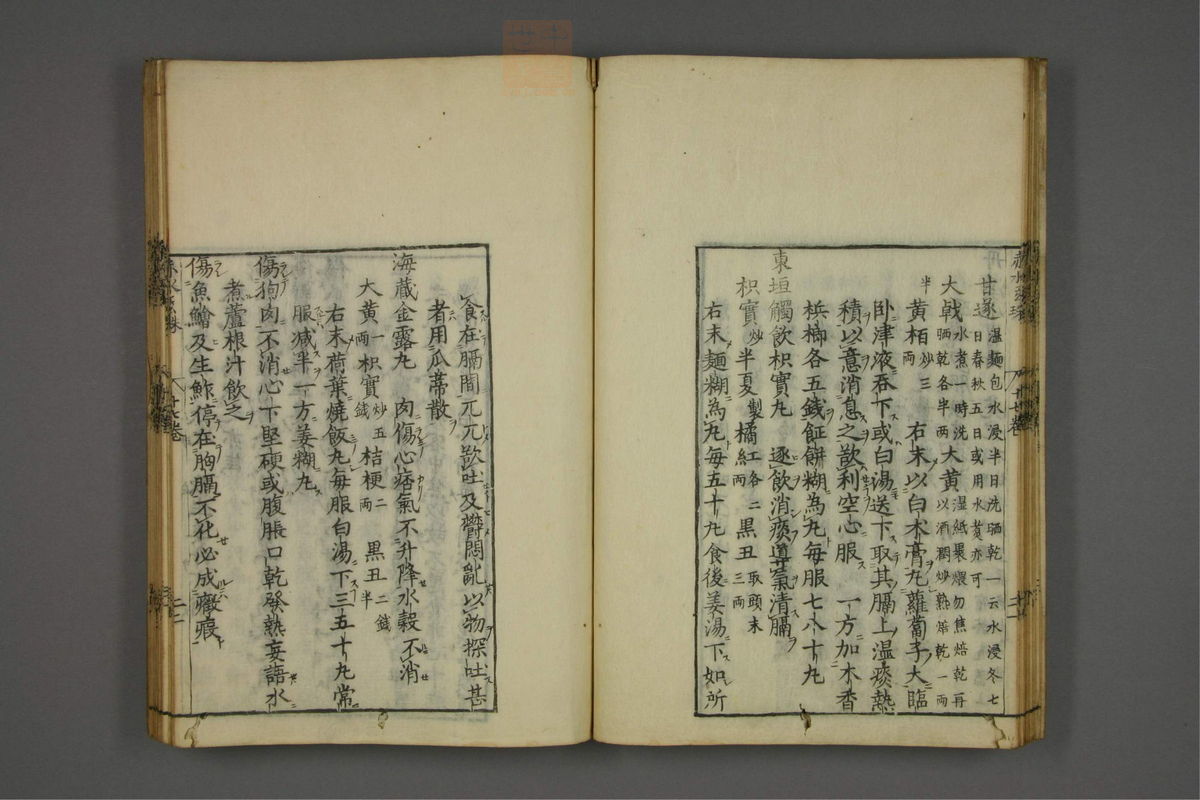 甘遂温麵包水浸半日洗晒乾一云水浸冬七日春秋五日或用水煑亦可
大戟水煮一時洗晒乾各半两大黄湿紙裹煨勿焦焙乾再以酒潤炒熟焙乾一两
半黄栢炒三两 右末以白木膏丸蘿蔔子大臨
卧津液吞下或白湯送下取其膈上温痰熱
積以意消息之欲利空心服 一方加木香
梹榔各五錢䬳餅糊為丸每服七八十丸
東垣觸飲枳實丸 逐飲消痰導氣清膈
枳實炒半夏製橘紅各二两黒丑取頭末三两
右末麵糊為丸每五十丸食後姜湯下如所
食在膈間兀兀欲吐及鬱悶亂以物探吐甚
者用瓜蒂散
海蔵金露丸 肉傷心痞氣不升降水穀不消
大黄一两枳實炒五錢桔梗二两黒丑二錢半
右末荷葉燒飯丸每服白湯下三五十丸常
服減半一方姜糊丸
傷狗肉不消心下堅硬或腹脹口乾發熱妄語水
煮蘆根汁飲之
傷魚鱠及生鮓停在胸膈不化必成癥瘕